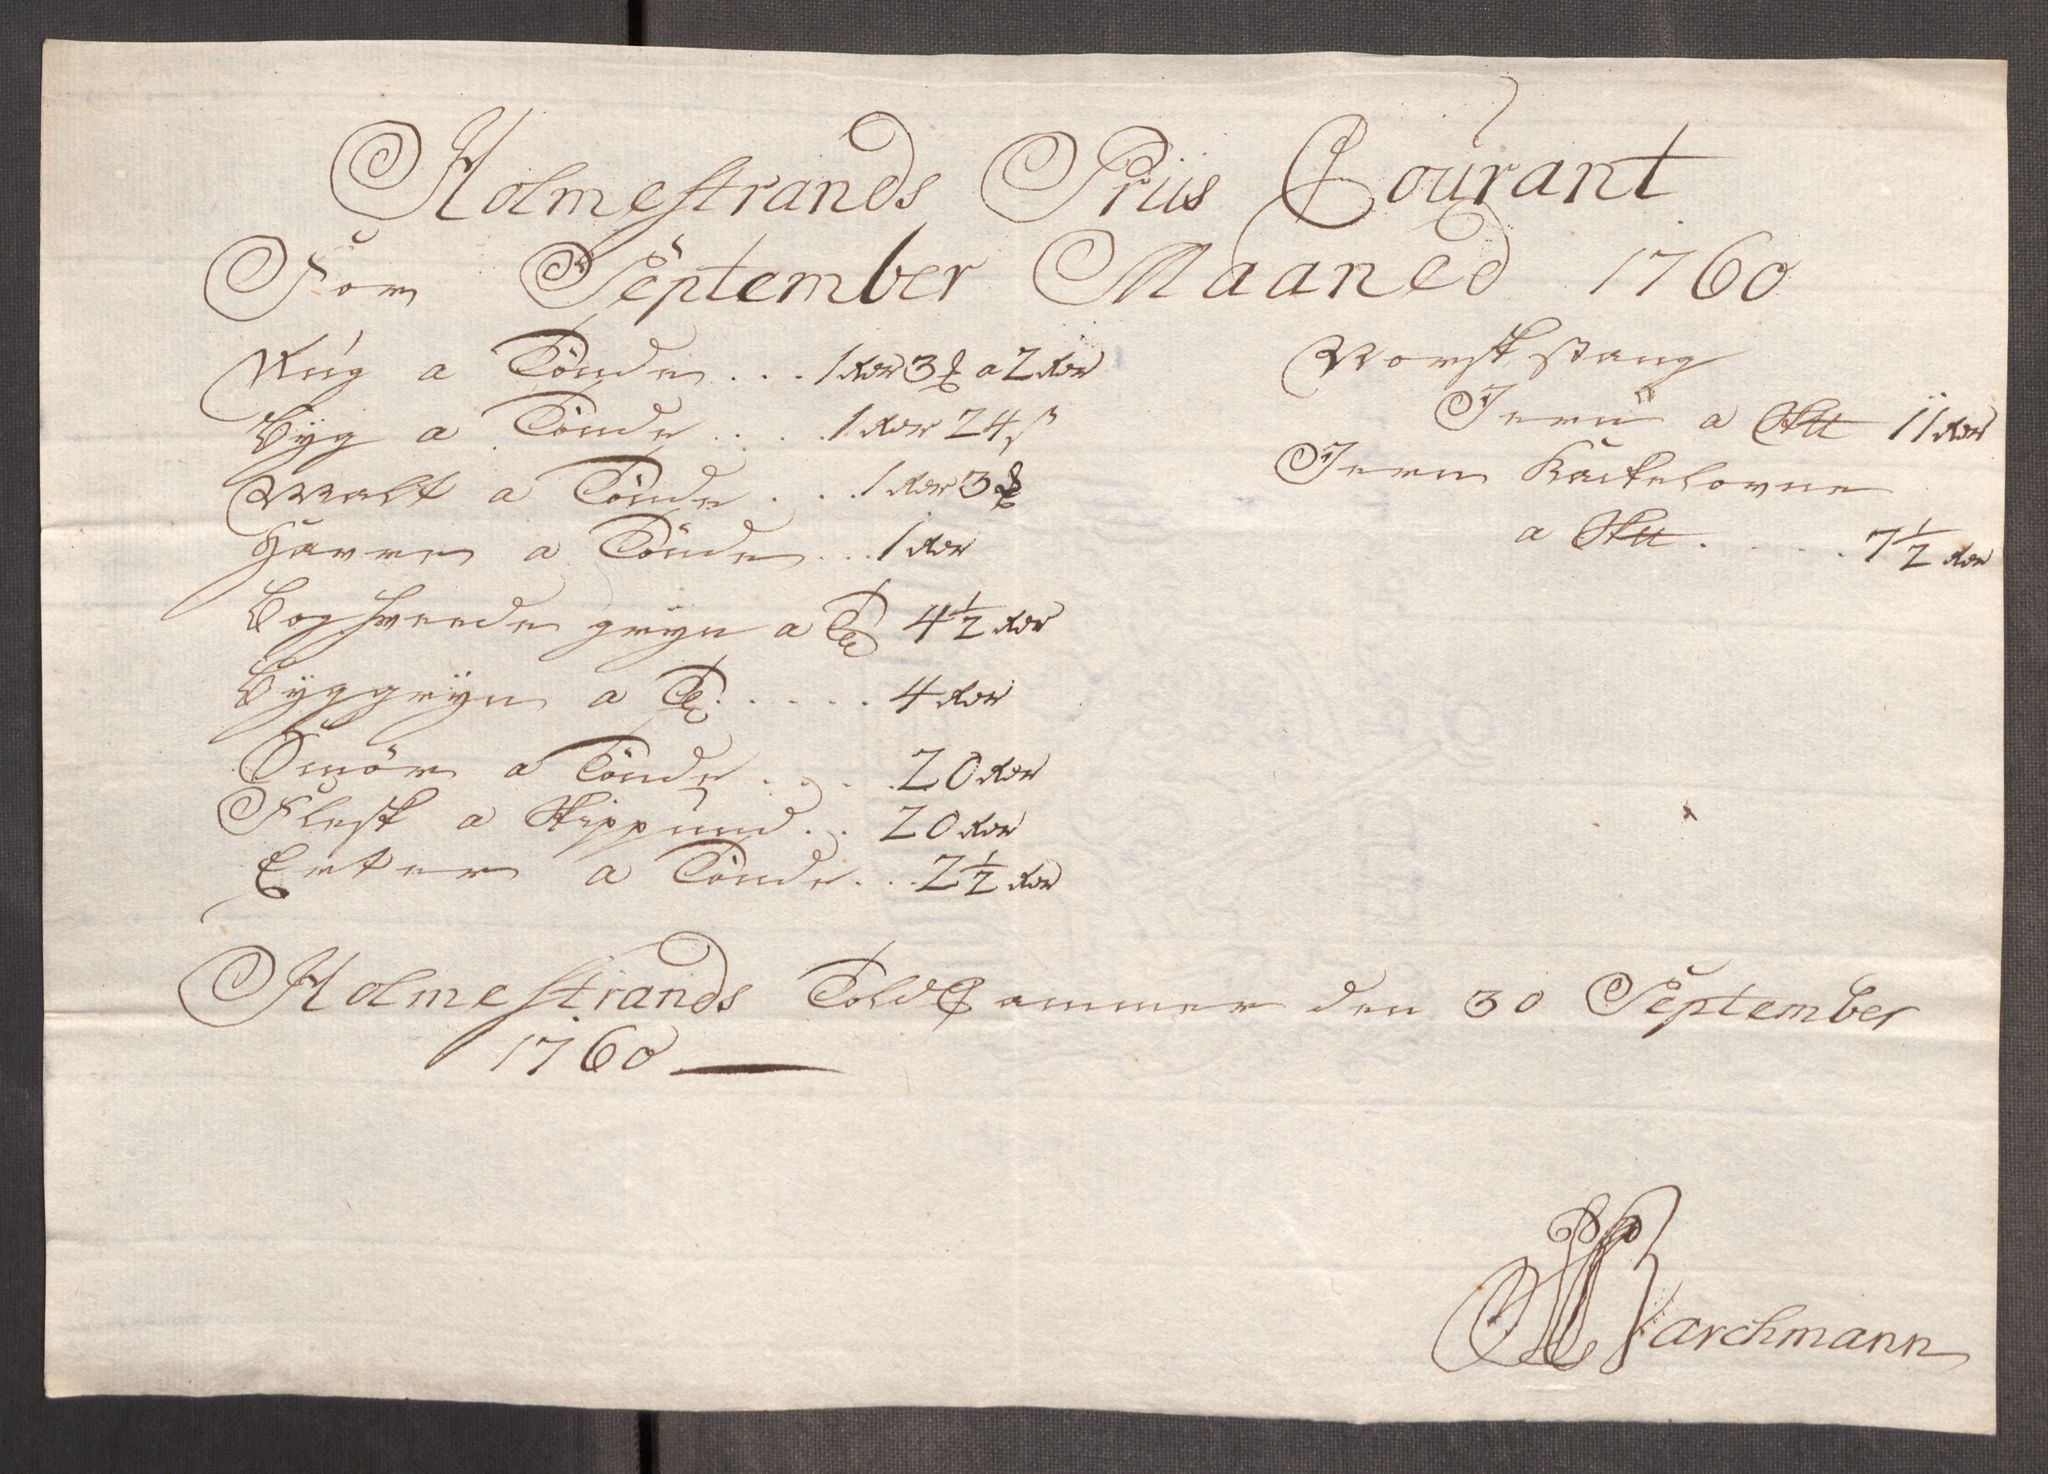 Holmestrands Priis Courant
For September Maaned 1760
Rug a Tönde . . . 1 Rdr 3 ₰ a 2 Rdr
Byg a Tönde . . . . 1 Rdr 24 ß
Malt a Tönde . . . 1 Rdr 3 ₰
Havre a Tönde . . . 1 Rdr
Boghvede gryn a Tde 4½ Rdr
Byggryn a Tde . . . . . 4 Rdr
Smör a Tönde . . . . 20 Rdr
Flesk a Skippund . . 20 Rdr
Erter a Tönde . . . 2½ Rdr
Norsk stang
Jern a Sk℔ 11 Rdr
Jern Kackelovne
a Sk℔ . . . . . 7½ Rdr
Holmestrands Told Cammer den 30 September
1760
Barchmann